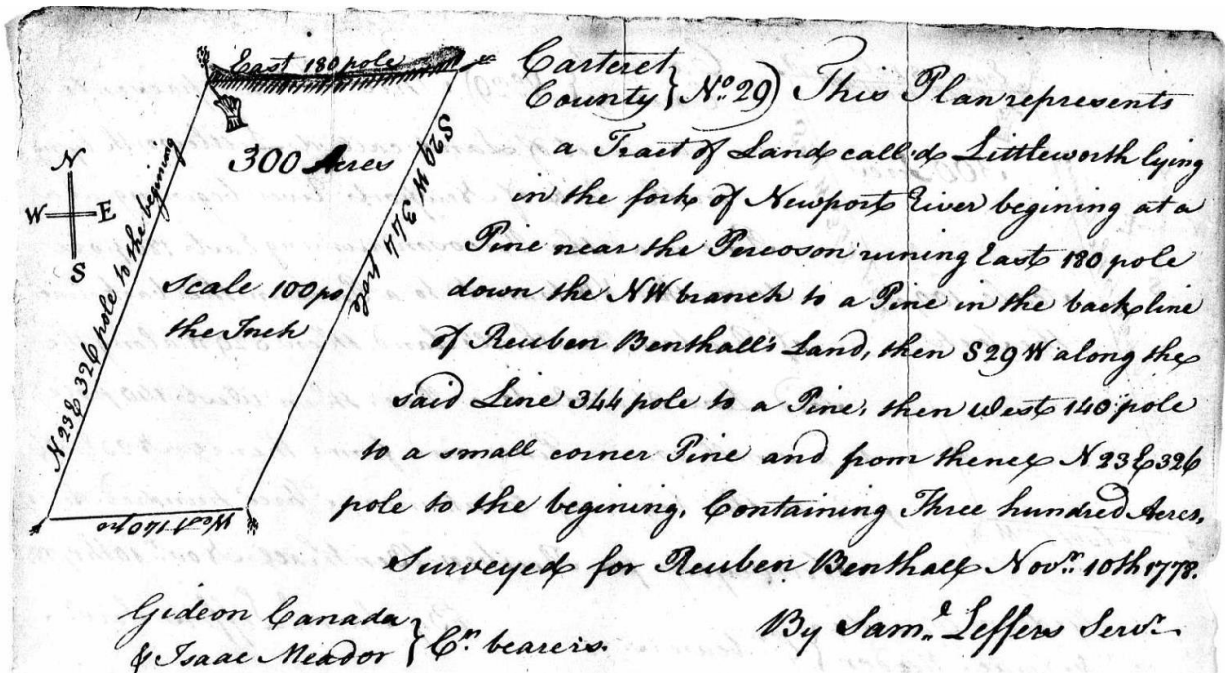 East 180 pole
300 Acres
N
W E
S
Scale 100 po
the Inch
N 23 E 326 pole to the begining
S 29 W 344 pole
West 140 po
Carteret
County } No. 29) This Plan represents
a Tract of Land called Littleworth lying
in the fork of Newport River begining at a
Pine near the Percoson runing East 180 pole
down the NW branch to a Pine in the back line
of Reuben Benthall's Land, then S 29 W along the
said Line 344 pole to a Pine, then West 140 pole
to a small corner Pine and from thence N 23 E 326
pole to the begining, Containing Three hundred Acres,
Surveyed for Reuben Benthall Novr. 10th 1778.
By Saml. Leffers Survr.
Gideon Canada
& Isaac Meador } Cn. bearers.